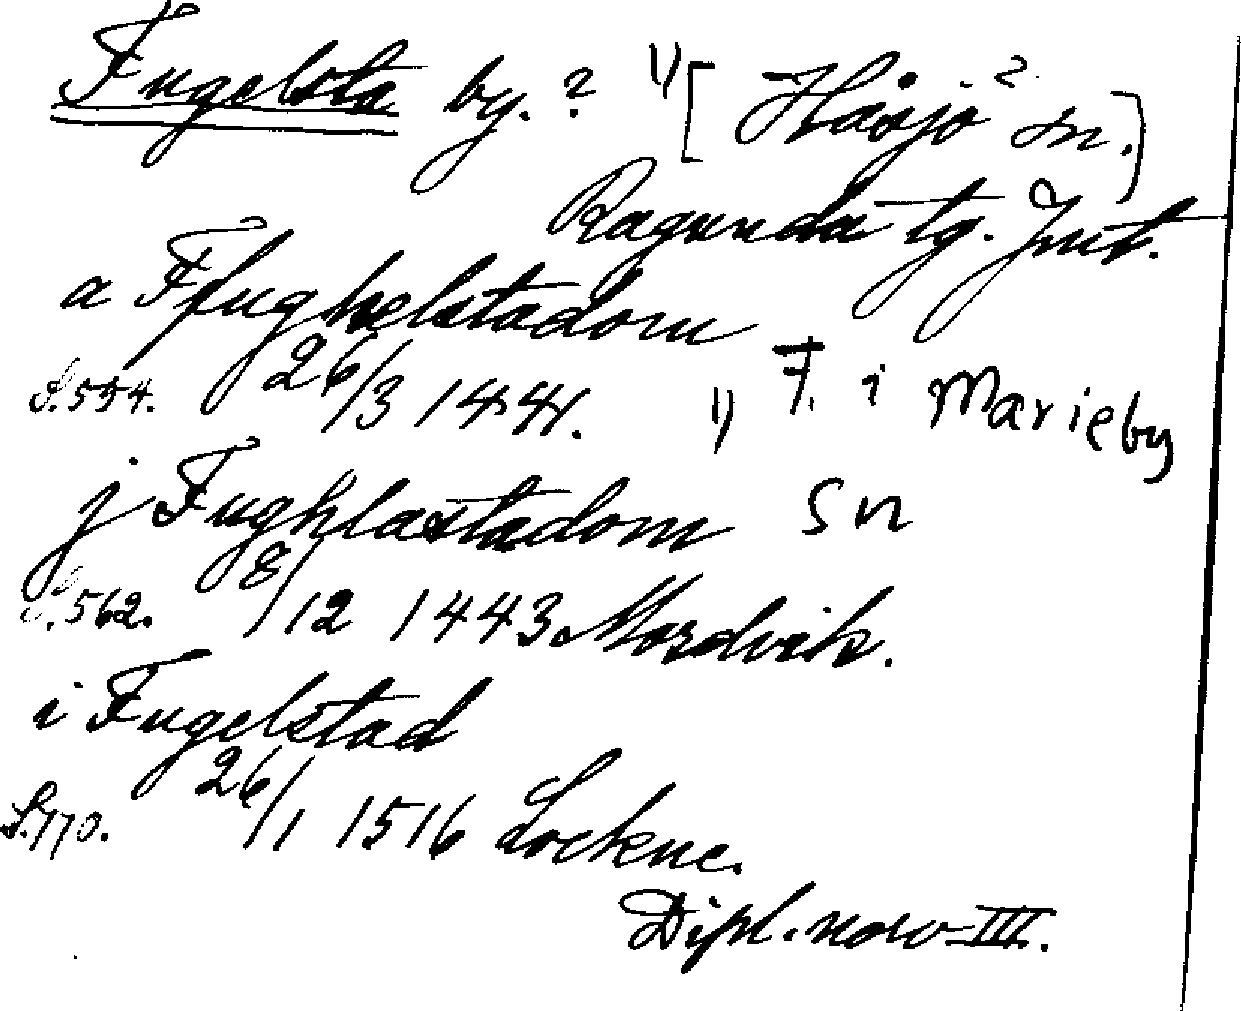 Fugelsta by. ? 1) [Håsjö ? sn.]
Ragunda tg. Jmt.
a Ffughelstadom
S. 554. 26/3 1441. 1) F. i Marieby
j Fughlastadom sn
S. 562. 8/12 1443. Mordvik.
i Fugelstad
S. 170. 26/1 1516 Lockne.
Dipl. norv III.